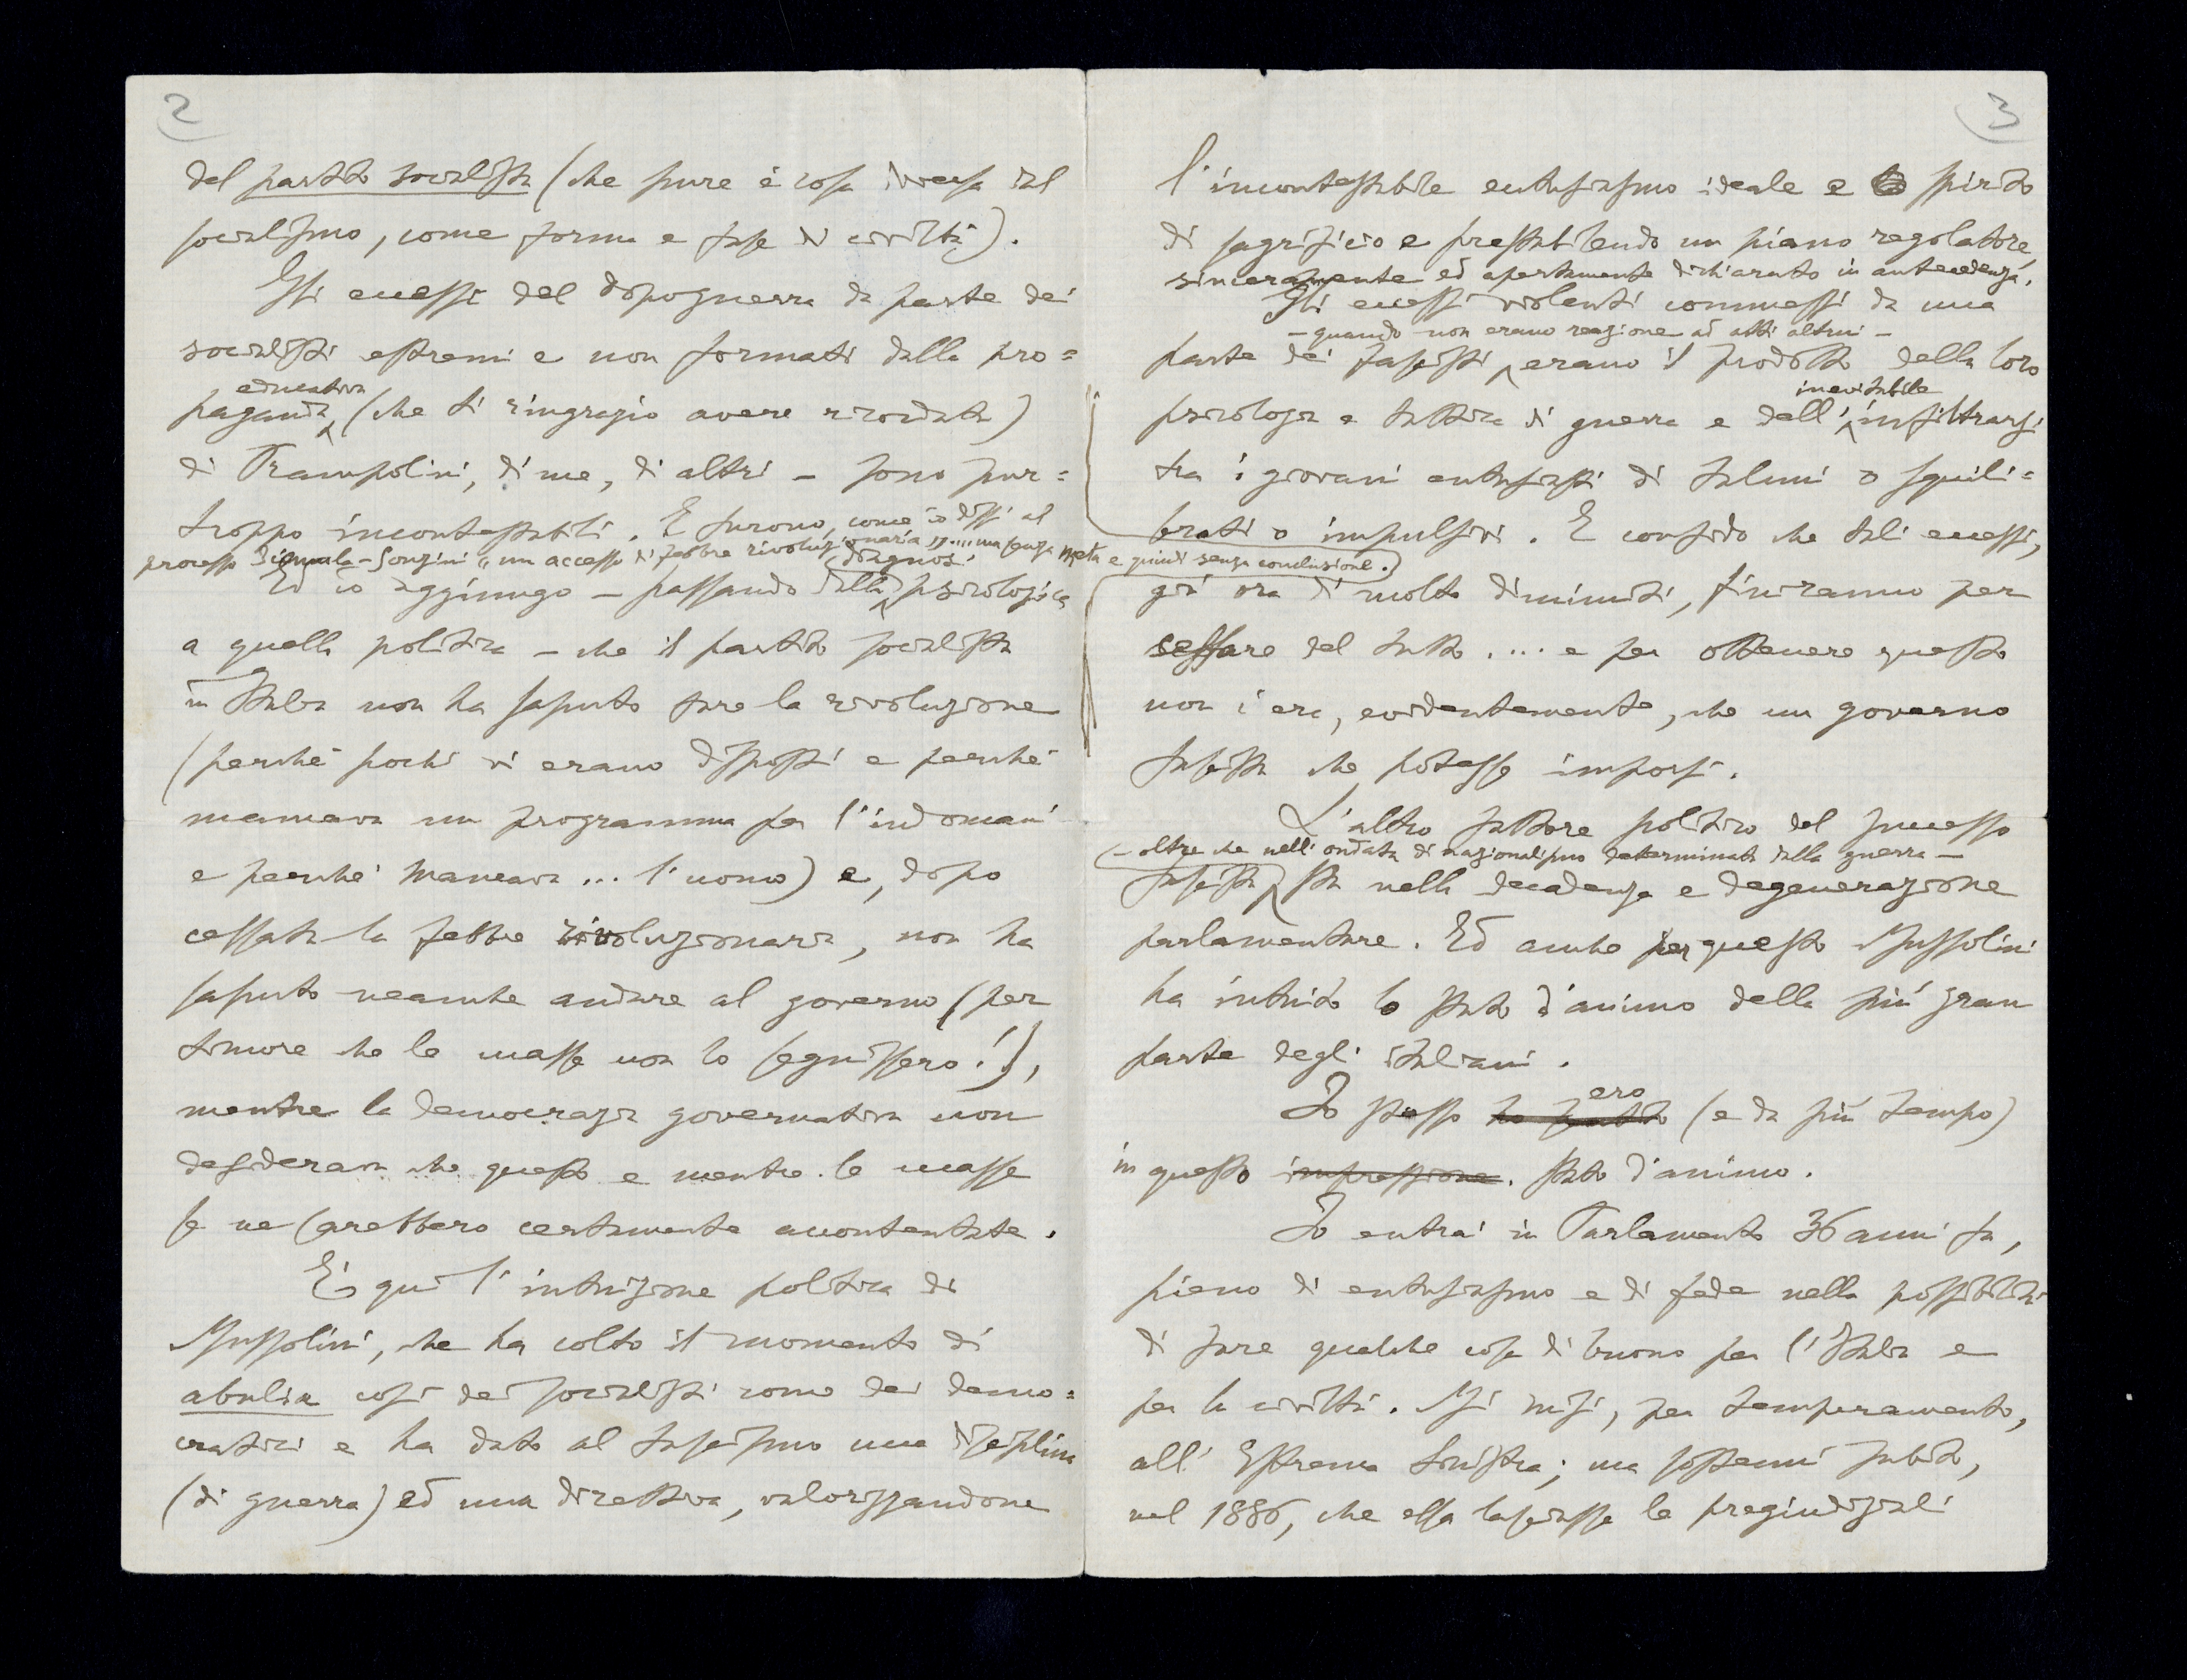 2
del partito socialista (che pure è cosa diversa dal
socialismo, come forma e fase di civiltà).
Gli eccessi del dopoguerra da parte dei
socialisti estremi e non formati dalla pro=
educativa
paganda (che ti ringrazio avere ricordata)
di Prampolini, di me, di altri – sono pur=
troppo incontestabili. E furono, come io dissi al
processo Scimula-Sonzini „un accesso di febbre rivoluzionaria „.... ma senza meta e quindi senza conclusione.
diagnosi
Ed io aggiungo – passando dalla psicologica
a quella politica – che il partito socialista
in Italia non ha saputo fare la rivoluzione
(perchè pochi vi erano disposti e perchè
mancava un programma per l'indomani
e perchè mancava ... l'uomo) e, dopo
cessata la febbre rivoluzionaria, non ha
saputo neanche andare al governo (per
timore che le masse non lo seguissero!),
mentre la democrazia governativa non
desiderava che questo e mentre le masse
se ne sarebbero certamente accontentate.
E' qui l'intuizione politica di
Mussolini, che ha colto il momento di
abulia così dei socialisti come dei demo=
cratici e ha dato al fascismo una disciplina
(di guerra) ed una direttiva, valorizzandone
3
l'incontestabile entusiasmo ideale e spirito
di sagrificio e prestabilendo un piano regolatore,
sinceramente ed apertamente dichiarato in antecedenza.
Gli eccessi violenti commessi da una
– quando non erano reazione ad atti altrui –
parte dei fascisti, erano il prodotto della loro
inevitabile
psicologia e tattica di guerra e dell' infiltrarsi
tra i giovani entusiasti di taluni o squili=
brati o impulsivi. E confido che tali eccessi,
già ora di molto diminuiti, finiranno per
cessare del tutto .... e per ottenere questo
non c'era, evidentemente, che un governo
fascista che potesse imporsi.
L'altro fattore politico del successo
– oltre che nell'ondata di nazionalismo determinata dalla guerra –
fascista sta nella decadenza e degenerazione
parlamentare. Ed anche per questo Mussolini
ha intuito lo stato d'animo della più gran
parte degli italiani.
ero
Io stesso ho sentito (e da più tempo)
in questo impressione. stato d'animo.
Io entrai in Parlamento 36 anni fa,
pieno di entusiasmo e di fede nella possibilità
di fare qualche cosa di buono per l'Italia e
per la civiltà. Mi misi, per temperamento,
all'Estrema Sinistra; ma sostenni subito,
nel 1886, che essa lasciasse le pregiudiziali